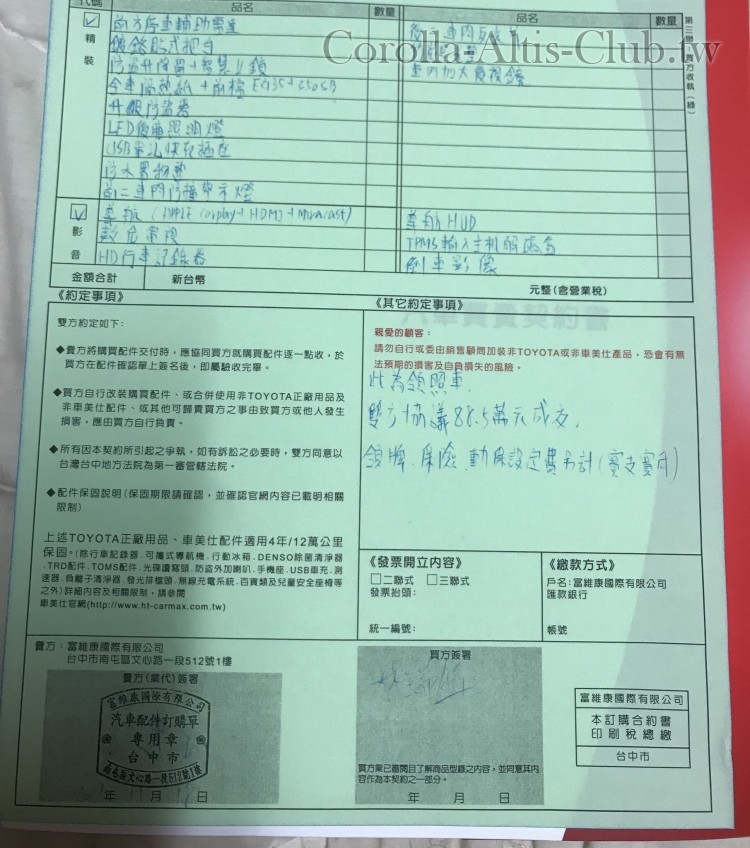 代碼 品名 數量 品名 數量
Corolla-Altis-Club.tw
精裝
前方停車輔助雷達
鍍鉻貼式把手
全車隔熱紙+前檔
升級防盜器
LED後廂照明燈
USB
防水置物墊
車內加大後視鏡
影音
導航
數位電視
HD行車記錄器
導航HUD
TPMS輸入主機
倒車影像
金額合計 新台幣 元整(含營業稅)
《約定事項》
雙方約定如下:
◆賣方將購買配件交付時，應協同買方就購買配件逐一點收，於
買方在配件確認單上簽名後，即屬驗收完畢。
◆買方自行改裝購買配件、或合併使用非TOYOTA正廠用品及
非車美仕配件、或其他可歸責買方之事由致買方或他人發生
損害，應由買方自行負責。
◆所有因本契約所引起之爭執，如有訴訟之必要時，雙方同意以
台灣台中地方法院為第一審管轄法院。
◆配件保固說明(保固期限請確認，並確認官網內容已載明相關
限制)
上述TOYOTA正廠用品、車美仕配件適用4年/12萬公里
保固。(除行車記錄器.可攜式導航機.行動冰箱.DENSO除菌清淨器
.TRD配件.TOMS配件.光碟讀寫頭.防盜外加喇叭.手機座.USB車充.測
速器.負離子清淨器.發光排檔頭.無線充電系統.百貨類及兒童安全座椅等
之外)詳細內容及相關限制，請參閱
車美仕官網(http://www.ht-carmax.com.tw)
《其它約定事項》
親愛的顧客：
請勿自行或委由銷售顧問加裝非TOYOTA或非車美仕產品，恐會有無
法預期的損害及自負損失的風險。
此為領照車
雙方協議88.5萬元成交,
領牌.保險.動保設定費另計(實支實付)
《發票開立內容》
□二聯式 □三聯式
發票抬頭:
統一編號:
《繳款方式》
戶名:富維康國際有限公司
匯款銀行
帳號
賣方:富維康國際有限公司
台中市南屯區文心路一段512號1樓
賣方(業代)簽署
富維康國際有限公司
汽車配件訂購單
專用章
台中市
南屯區文心路一段512號1樓
年 月 日
買方簽署
買方業已審閱且了解商品型錄之內容，並同意其內
容作為本契約之一部分。
年 月 日
富維康國際有限公司
本訂購合約書
印刷稅總繳
台中市